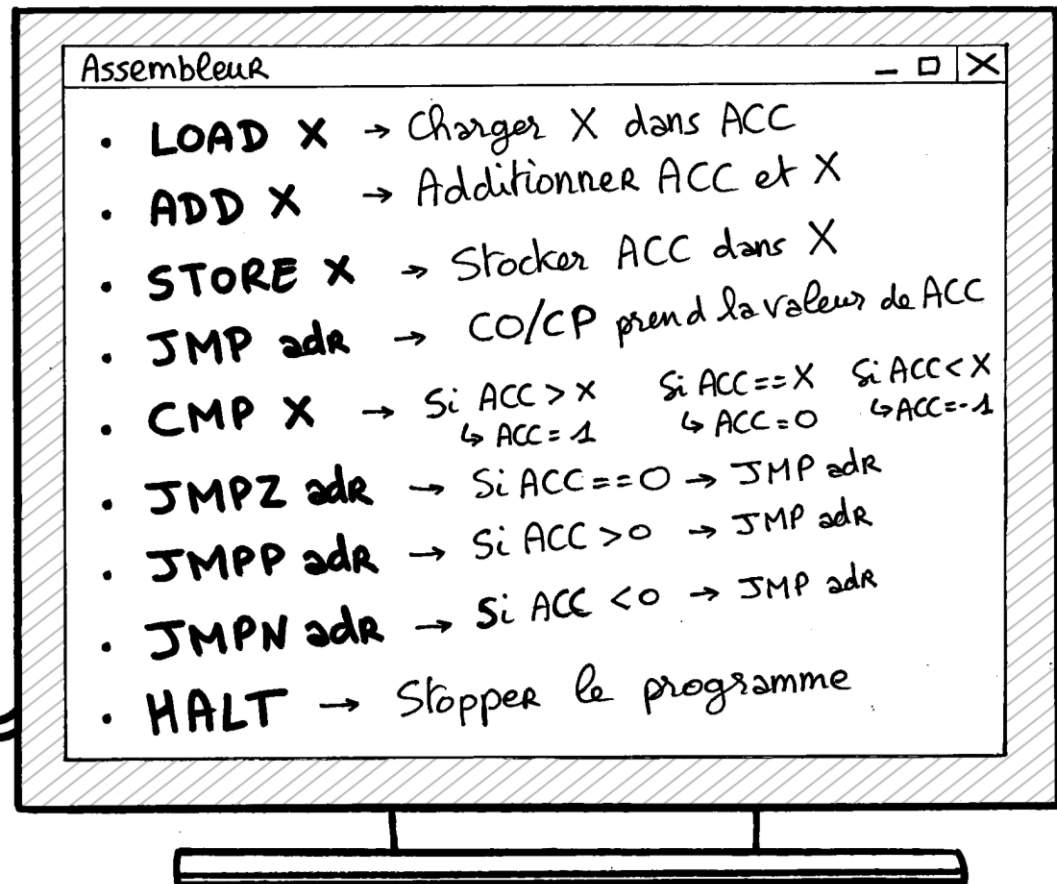 Assembleur
• LOAD X → Charger X dans ACC
• ADD X → Additionner ACC et X
• STORE X → Stocker ACC dans X
• JMP adr → CO/CP prend la valeur de ACC
• CMP X → Si ACC > X Si ACC == X Si ACC < X
↳ ACC = 1 ↳ ACC = 0 ↳ ACC = -1
• JMPZ adr → Si ACC == 0 → JMP adr
• JMPP adr → Si ACC > 0 → JMP adr
• JMPN adr → Si ACC < 0 → JMP adr
• HALT → Stopper le programme